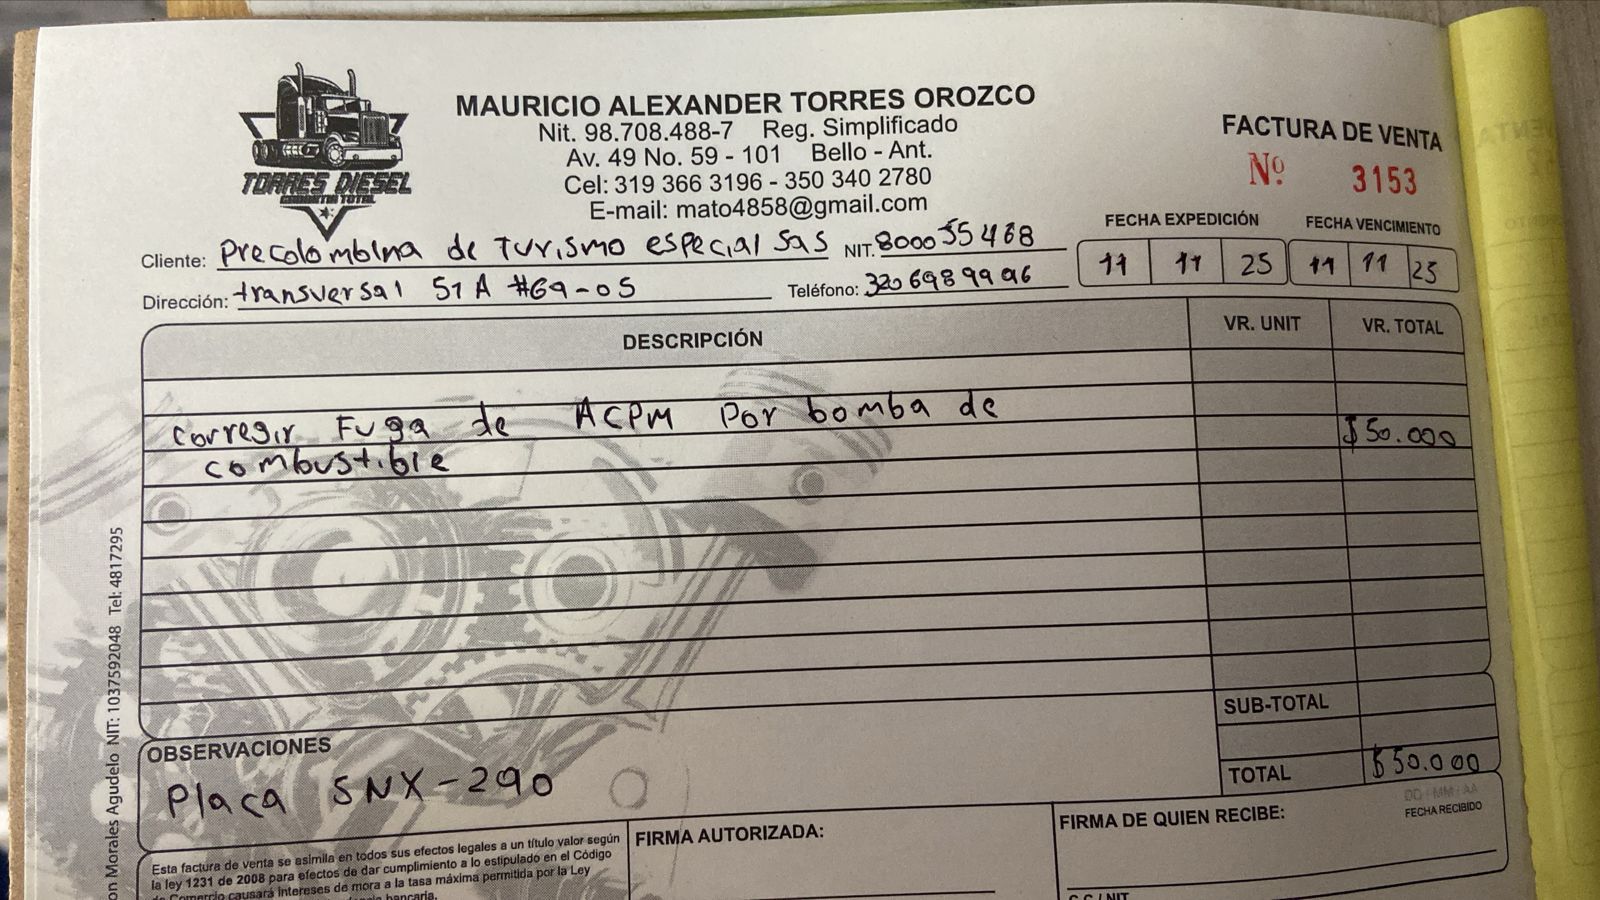 MAURICIO ALEXANDER TORRES OROZCO
Nit. 98.708.488-7 Reg. Simplificado
Av. 49 No. 59 - 101 Bello - Ant.
Cel: 319 366 3196 - 350 340 2780
E-mail: mato4858@gmail.com
TORRES DIESEL
FACTURA DE VENTA
Nº 3153
FECHA EXPEDICIÓN FECHA VENCIMIENTO
11 11 25 11 11 25
Cliente: Precolombina de Turismo especial sas NIT. 800055468
Dirección: transversal 51A #69-05 Teléfono: 3206989996
DESCRIPCIÓN VR. UNIT VR. TOTAL
corregir Fuga de ACPM Por bomba de $50.000
combustible
SUB-TOTAL
TOTAL $50.000
OBSERVACIONES
Placa SNX-290
DD / MM / AA
FECHA RECIBIDO
FIRMA AUTORIZADA:
FIRMA DE QUIEN RECIBE:
Esta factura de venta se asimila en todos sus efectos legales a un título valor según
la ley 1231 de 2008 para efectos de dar cumplimiento a lo estipulado en el Código
de Comercio causará intereses de mora a la tasa máxima permitida por la Ley
bancaria.
C.C./NIT
on Morales Agudelo NIT: 1037592048 Tel: 4817295